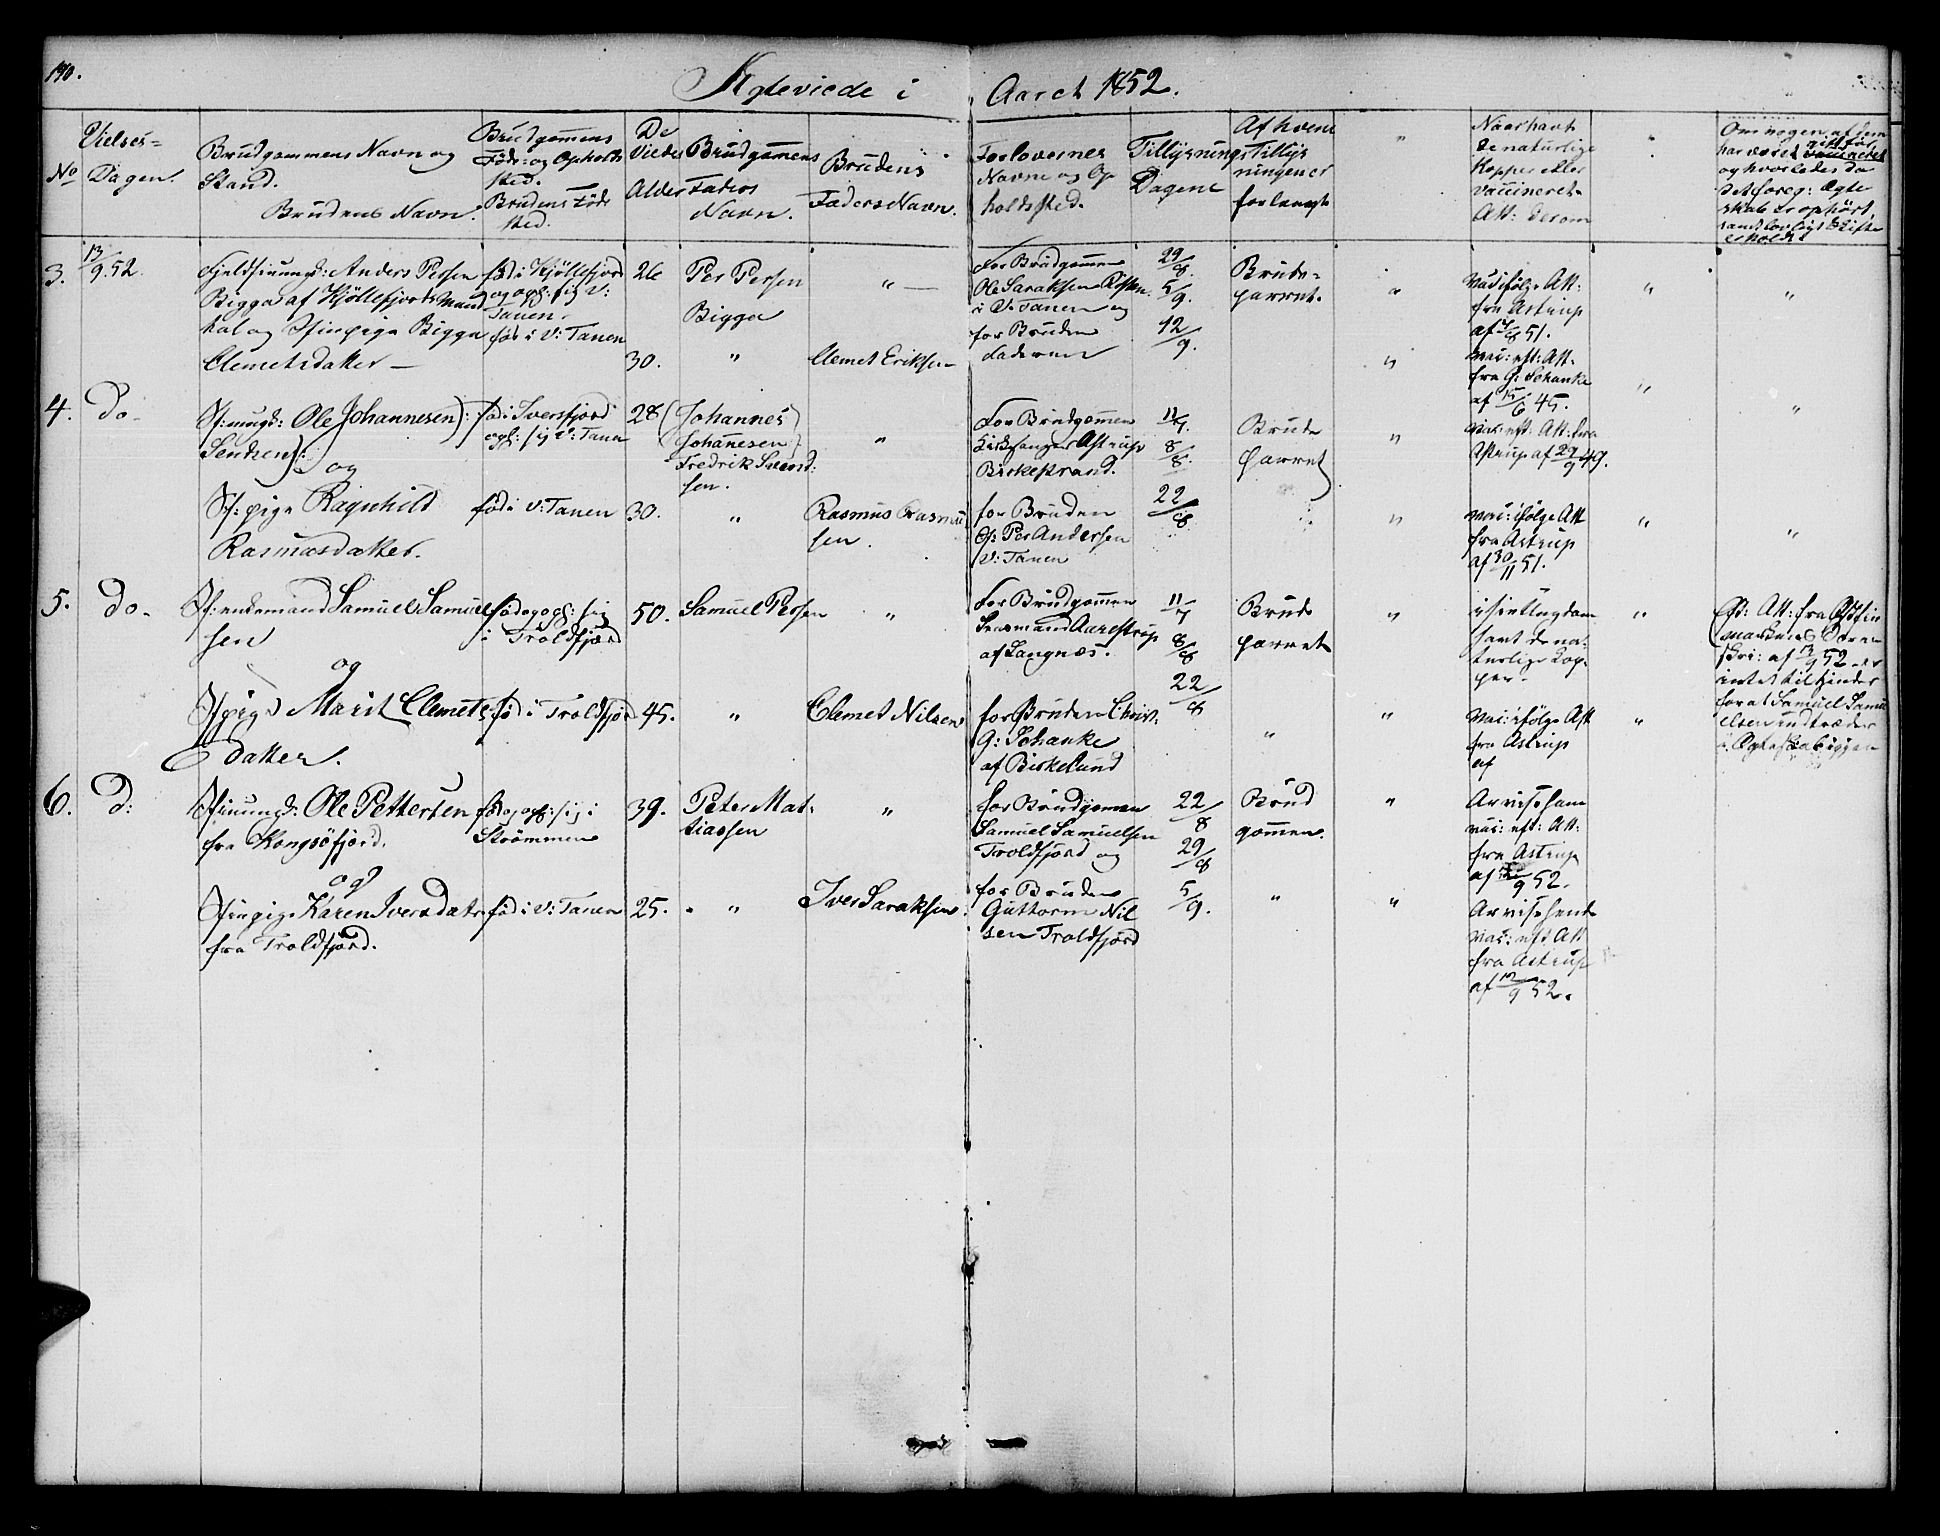 190.
Ægteviede i Aaret 1852.
No
Vielses-
Dagen.
Brudgommens Navn og
Stand.
Brudens Navn.
Brudgommens
Føde- og Opholds
sted.
Brudens Føde
sted.
De
Viedes
Alder
Brudgommens
Faders
Navn.
Brudens
Faders Navn.
Forlovernes
Navne og Op
holdssted.
Tillysnings
Dagene
Af hvem
Tillys
ningen er
forlangt
"
Naar havt
de naturlige
Kopper eller
vaccineret.
Att: derom
"
Om nogen af dem
har været gift før,
og hvorledes da
det foreg: Ægte
skab er ophørt,
samt lovligt Skifte
er holdt
3.
13/9. 52.
Fjeldfinungk: Anders Persen
Bigga af Kjöllefjords Mand
tal og Pige Bigga
Clemetsdatter —
fød i Kjöllefjord
og oph: sig i V:
Tanen.
fød i V: Tanen
26
30.
Per Persen
Bigga
"
" —
Clemet Eriksen
For Brudgommen
Ole Saraksen
i V: Tanen og
for Bruden
Faderen
29/8.
5/9.
12/9.
Brude-
parret.
"
"
vac: ifølge Att:
fra Astrup
af 51.
vac: eft: Att.
fra G: Schanke
af 15/6 45.
"
"
"
4.
Do.
Ole Johannesen):
og
pige Ragnhild
Rasmusdatter.
fød i Iversfjord
oph: sig V: Tanen
fød i V: Tanen
28
30.
(Johannes
Johanesen)
Fredrik
sen.
"
"
Rasmus Rasmu
sen.
For Brudgommen
Kirkesanger Astrup
Birkestrand.
for Bruden
G: Per Andersen
V: Tanen
11/7.
8/8.
22/8.
Brude
parret
"
"
vac: eft: Att: fra
Astrup af 29/9 49.
vac: ifølge Att
fra Astrup
af 30/11 51.
"
"
"
5.
Do.
enkemand Samuel Samuel
sen
og
pige Marit Clemets
datter.
fød og oph: sig
i Troldfjord
fød i Troldfjord
50.
45.
Samuel Persen
"
"
Clemet Nilsen
For Brudgommen
Lensmand Aarestrup
af Langnæs.
for Bruden Christ.
G: Schanke
af Birkelund
11/7
8/8
22/8
Brude
parret
"
"
"
i sin Ungdom
havt de na-
turlige Kop-
per.
vac: ifølge Att
fra Astrup
af
"
"
Eft: Att: fra Østfin
markens Soren
skri: af 13/9 52 er
intet til Hinder
for at Samuel Samu
elsen indtræder
i Ægteskab igjen
6.
D:
Ole Pettersen
fra Kongsöfjord.
og
pige Karen Iversdatr.
fra Troldfjord.
fød og oph: sig i
Strömmen
fød i V: Tanen
39.
25.
Peter Mat-
tiassen
"
"
Iver Saraksen.
for Brudgommen
Samuel Samuelsen
Troldfjord og
for Bruden
Guttorm Nil
sen Troldfjord
22/8
29/8
5/9.
Brud
gommen.
"
"
"
Ar vises han
vac: eft: Att:
fra Astrup
af 9 52.
Ar vises hende
vac: eft Att
fra Astrup
af 12/9 52.